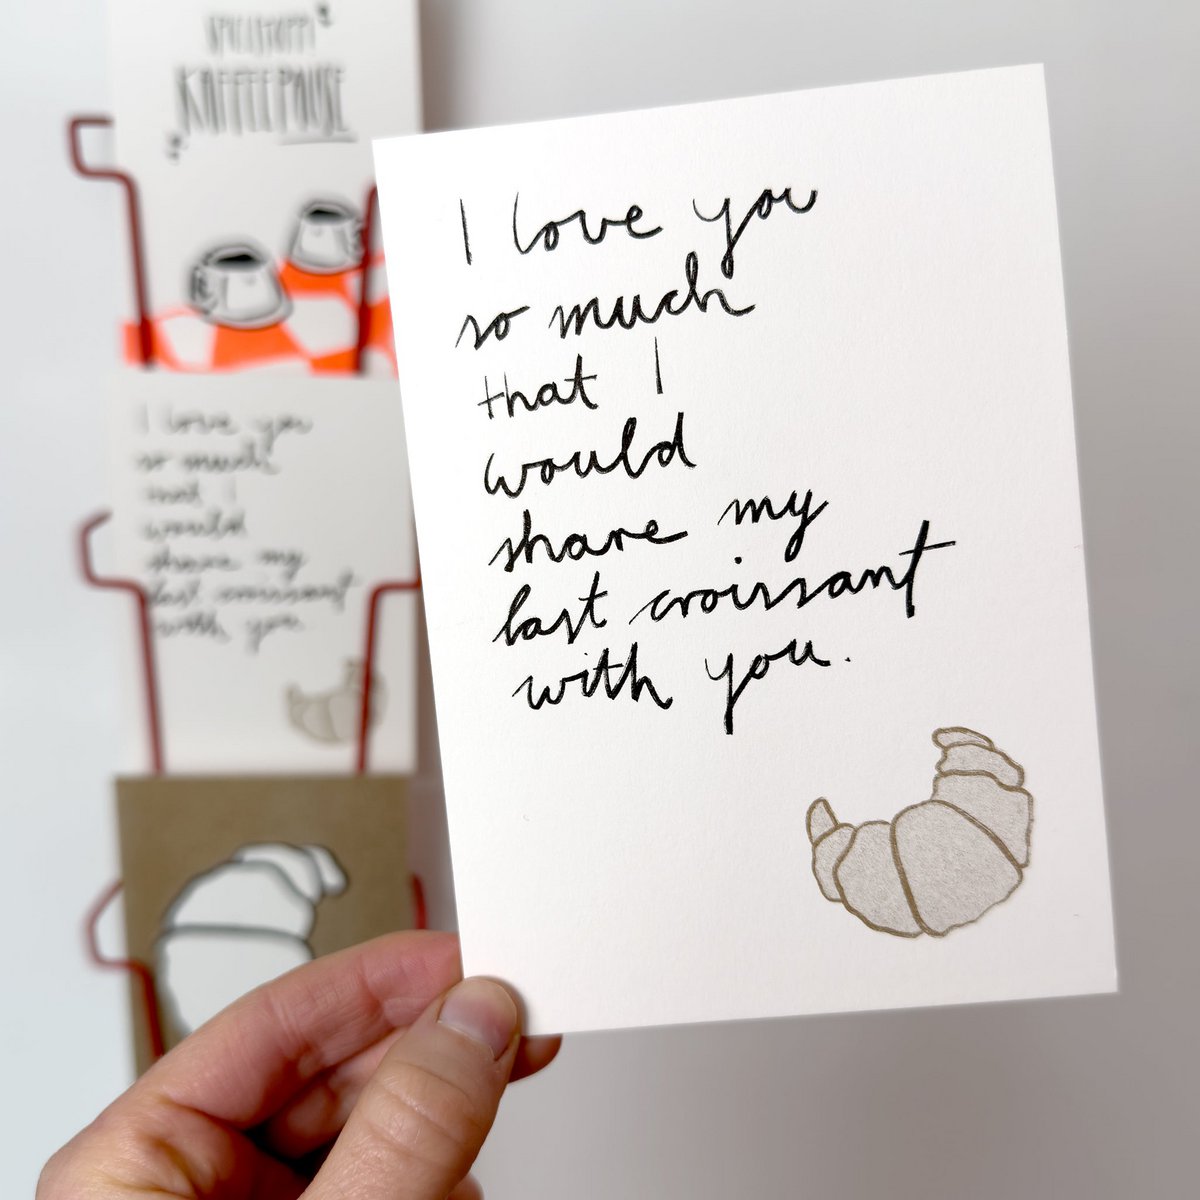 I love you
so much
that I
would
share my
last croissant
with you.
KAFFEEPAUSE
I love you
so much
that I
would
share my
last croissant
with you